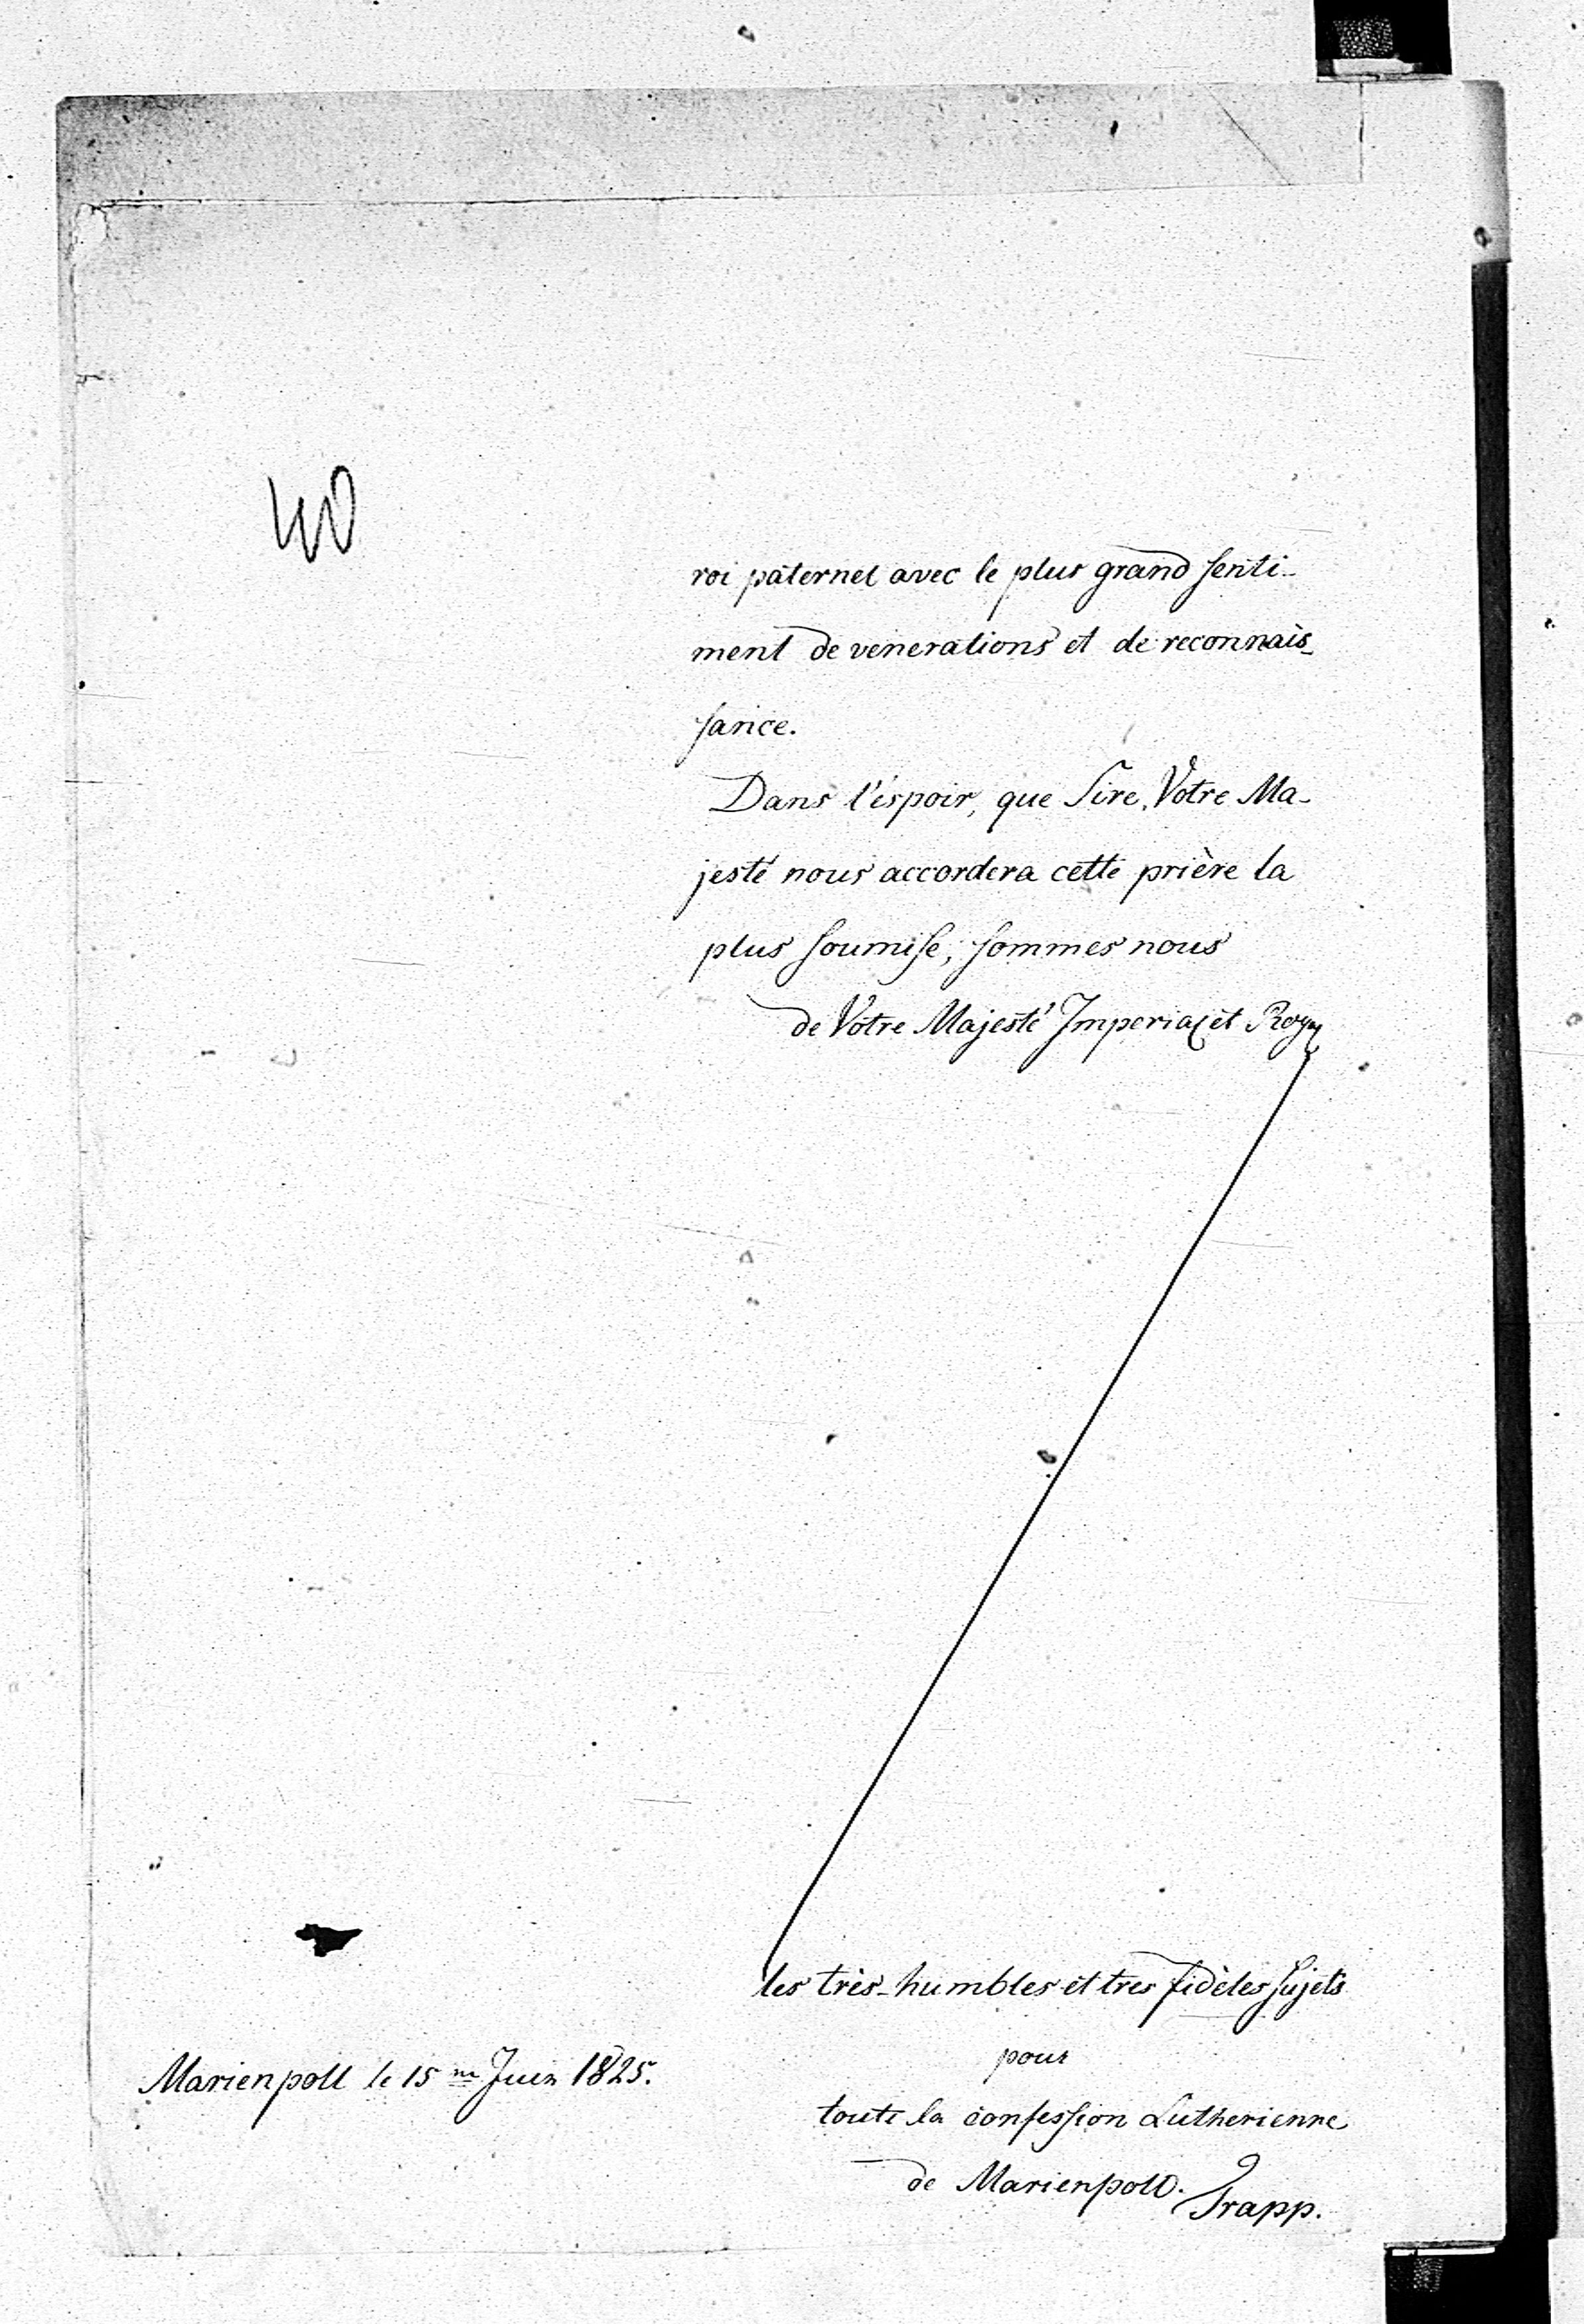 40
roi paternel avec le plus grand senti-
ment de venerations et de reconnais-
sance.
Dans l'éspoir, que Sire, Votre Ma-
jesté nous accordera cette prière la
plus soumise, sommes nous
de Votre Majesté Imperial et Roy
les très-humbles et tres fidèles sujets
pour
Marienpoll le 15 me Juin 1825.
toute la confession Lutherienne
de Marienpoll.
Trapp.